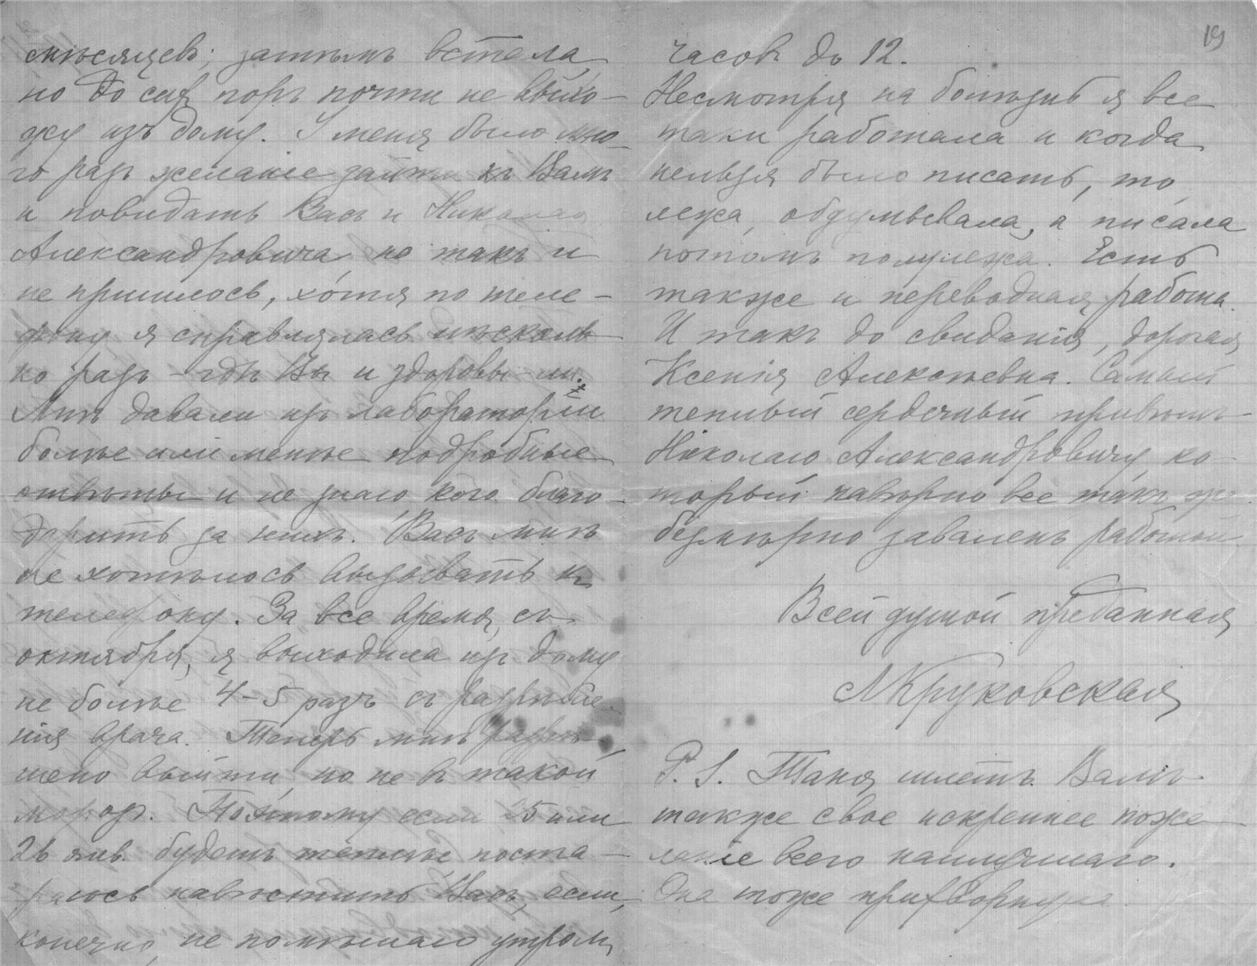 мѣсяцевъ; затѣмъ встала,
но до сихъ поръ почти не выхо-
жу изъ дому. У меня было мно-
го разъ желаніе зайти къ Вамъ
и повидать Васъ и Николая
Александровича, но такъ и
не пришлось, хотя по теле-
фону я справлялась нѣсколь-
ко разъ – гдѣ Вы и здоровы-ли.
Мнѣ давали изъ лабораторіи
болѣе или менѣе подробные
отвѣты и не знаю кого благо-
дарить за нихъ. Васъ мнѣ
не хотѣлось вызывать къ
телефону. За все время, съ
октября, я выходила изъ дому
не болѣе 4–5 разъ съ разрѣше-
нія врача. Теперь мнѣ разрѣ-
шено выйти, но не въ такой
морозъ. Поэтому если 25 или
26 янв. будетъ теплѣе поста-
раюсь навѣстить Васъ, если,
конечно, не помѣшаю утромъ,
19
часовъ до 12.
Несмотря на болѣзнь я все
таки работала и когда
нельзя было писать, то
лежа, обдумывала, а писала
потомъ полулежа. Есть
также и переводная работа.
И такъ до свиданія, дорогая
Ксенія Алексѣевна. Самый
теплый сердечный привѣтъ
Николаю Александровичу, ко-
торый навѣрно все такъ же
безмѣрно заваленъ работой
Всей душой преданная
М Круковская
P. S. Таня шлетъ Вамъ
также свое искреннее поже-
ланіе всего наилучшаго.
Она тоже прихворнула